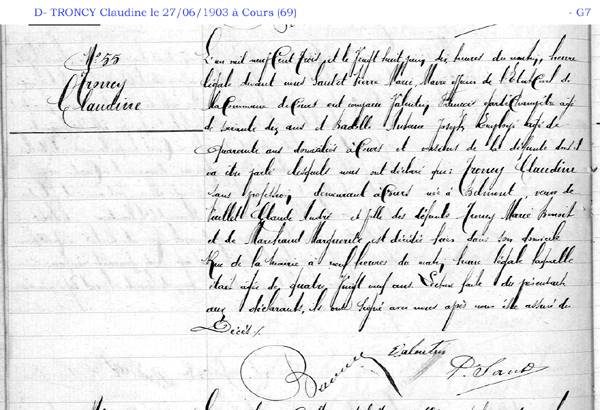 D- TRONCY Claudine le 27/06/1903 à Cours (69) - G7
N° 55
Troncy
Claudine
L'an mil neuf Cent Trois, et le Vingt huit juin, dix heures du matin, heure
légale devant nous Pierre Marie, Maire officier de l'Etat Civil de
la Commune de Cours ont comparu Valentin, Francis garde Champêtre agé
de dix ans et Antoine Joseph Employé agé de
Quarante ans domiciliés à Cours et de la défunte dont il
va être parlé lesquels nous ont déclaré que: Troncy Claudine
sans profession, demeurant à Cours née à Belmont, veuve de
Claude André et fille des défunts Troncy Marie Benoit
et de Marchand Marguerite est décédée hier dans son domicile
Rue de la mairie à neuf heures du matin, heure légale laquelle
était agée de quatre vingt neuf ans. Lecture faite du présent acte
aux déclarants, ils ont signé avec nous après nous être assuré du
Décès
Valentin